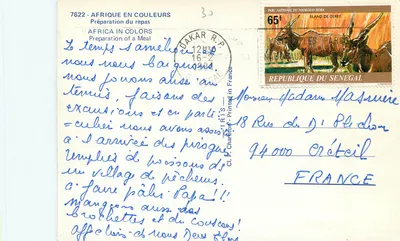 7622 - AFRIQUE EN COULEURS
Préparation du repas
AFRICA IN COLORS
Preparation of a Meal
Le temps s'améliore
nous nous baignons
nous jouons aussi au
tennis, faisons des
excursions et en parti
culier nous avons assisté
à l'arrivée des pirogues
remplies de poissons dans
un village de pêcheurs
à faire pâlir Papa !!
mangeons aussi des
brochettes et du couscous !
affectueusement
DAKAR R.P.
16-2
Printed in France
PARC NATIONAL DU NIOKOLO-KOBA
65F
ELAND DE DERBY
REPUBLIQUE DU SENEGAL
Monsieur Madame
18 Rue du Dr
94000 Créteil
FRANCE